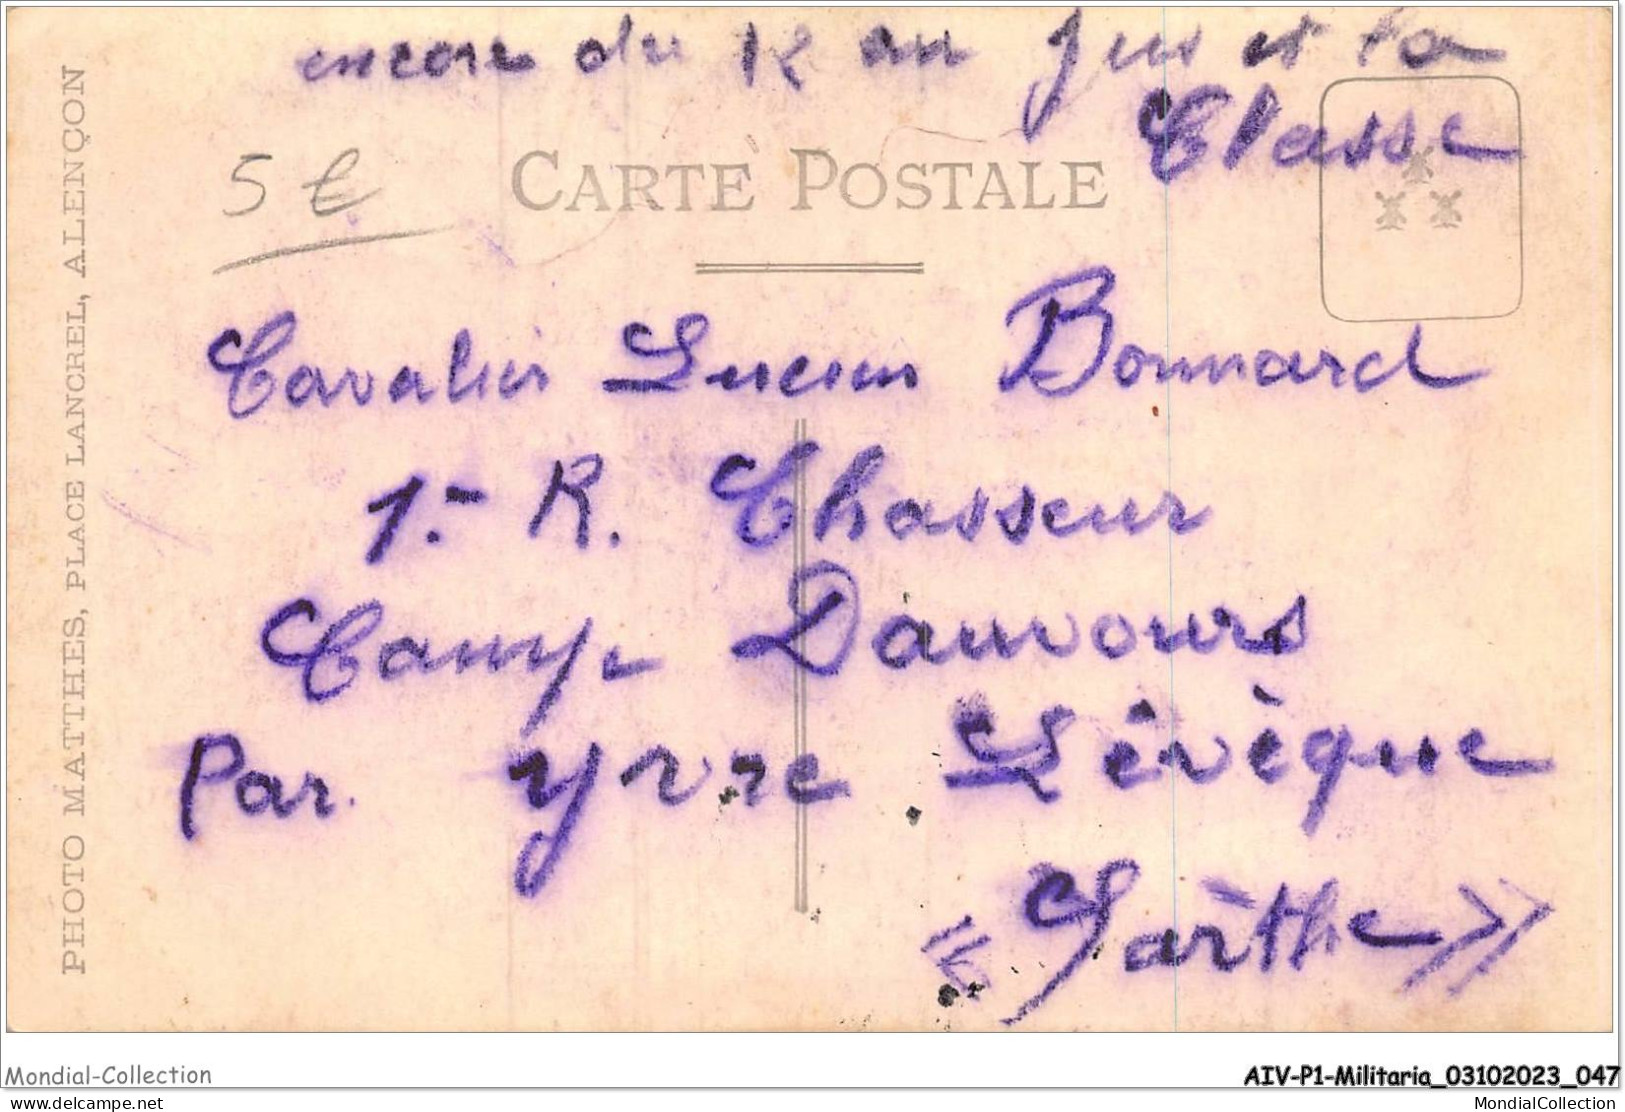 encore du 12 au jus et la
Classe
5 €
CARTE POSTALE
PHOTO MATTHES, PLACE LANCREL, ALENÇON
Cavalier Lucien Bonnard
1.- R. Chasseur
Camp Dauvours
Par. Yvre Lévèque
"Sarthe"
Mondial-Collection
AIV-P1-Militaria_03102023_047
delcampe.net
MondialCollection